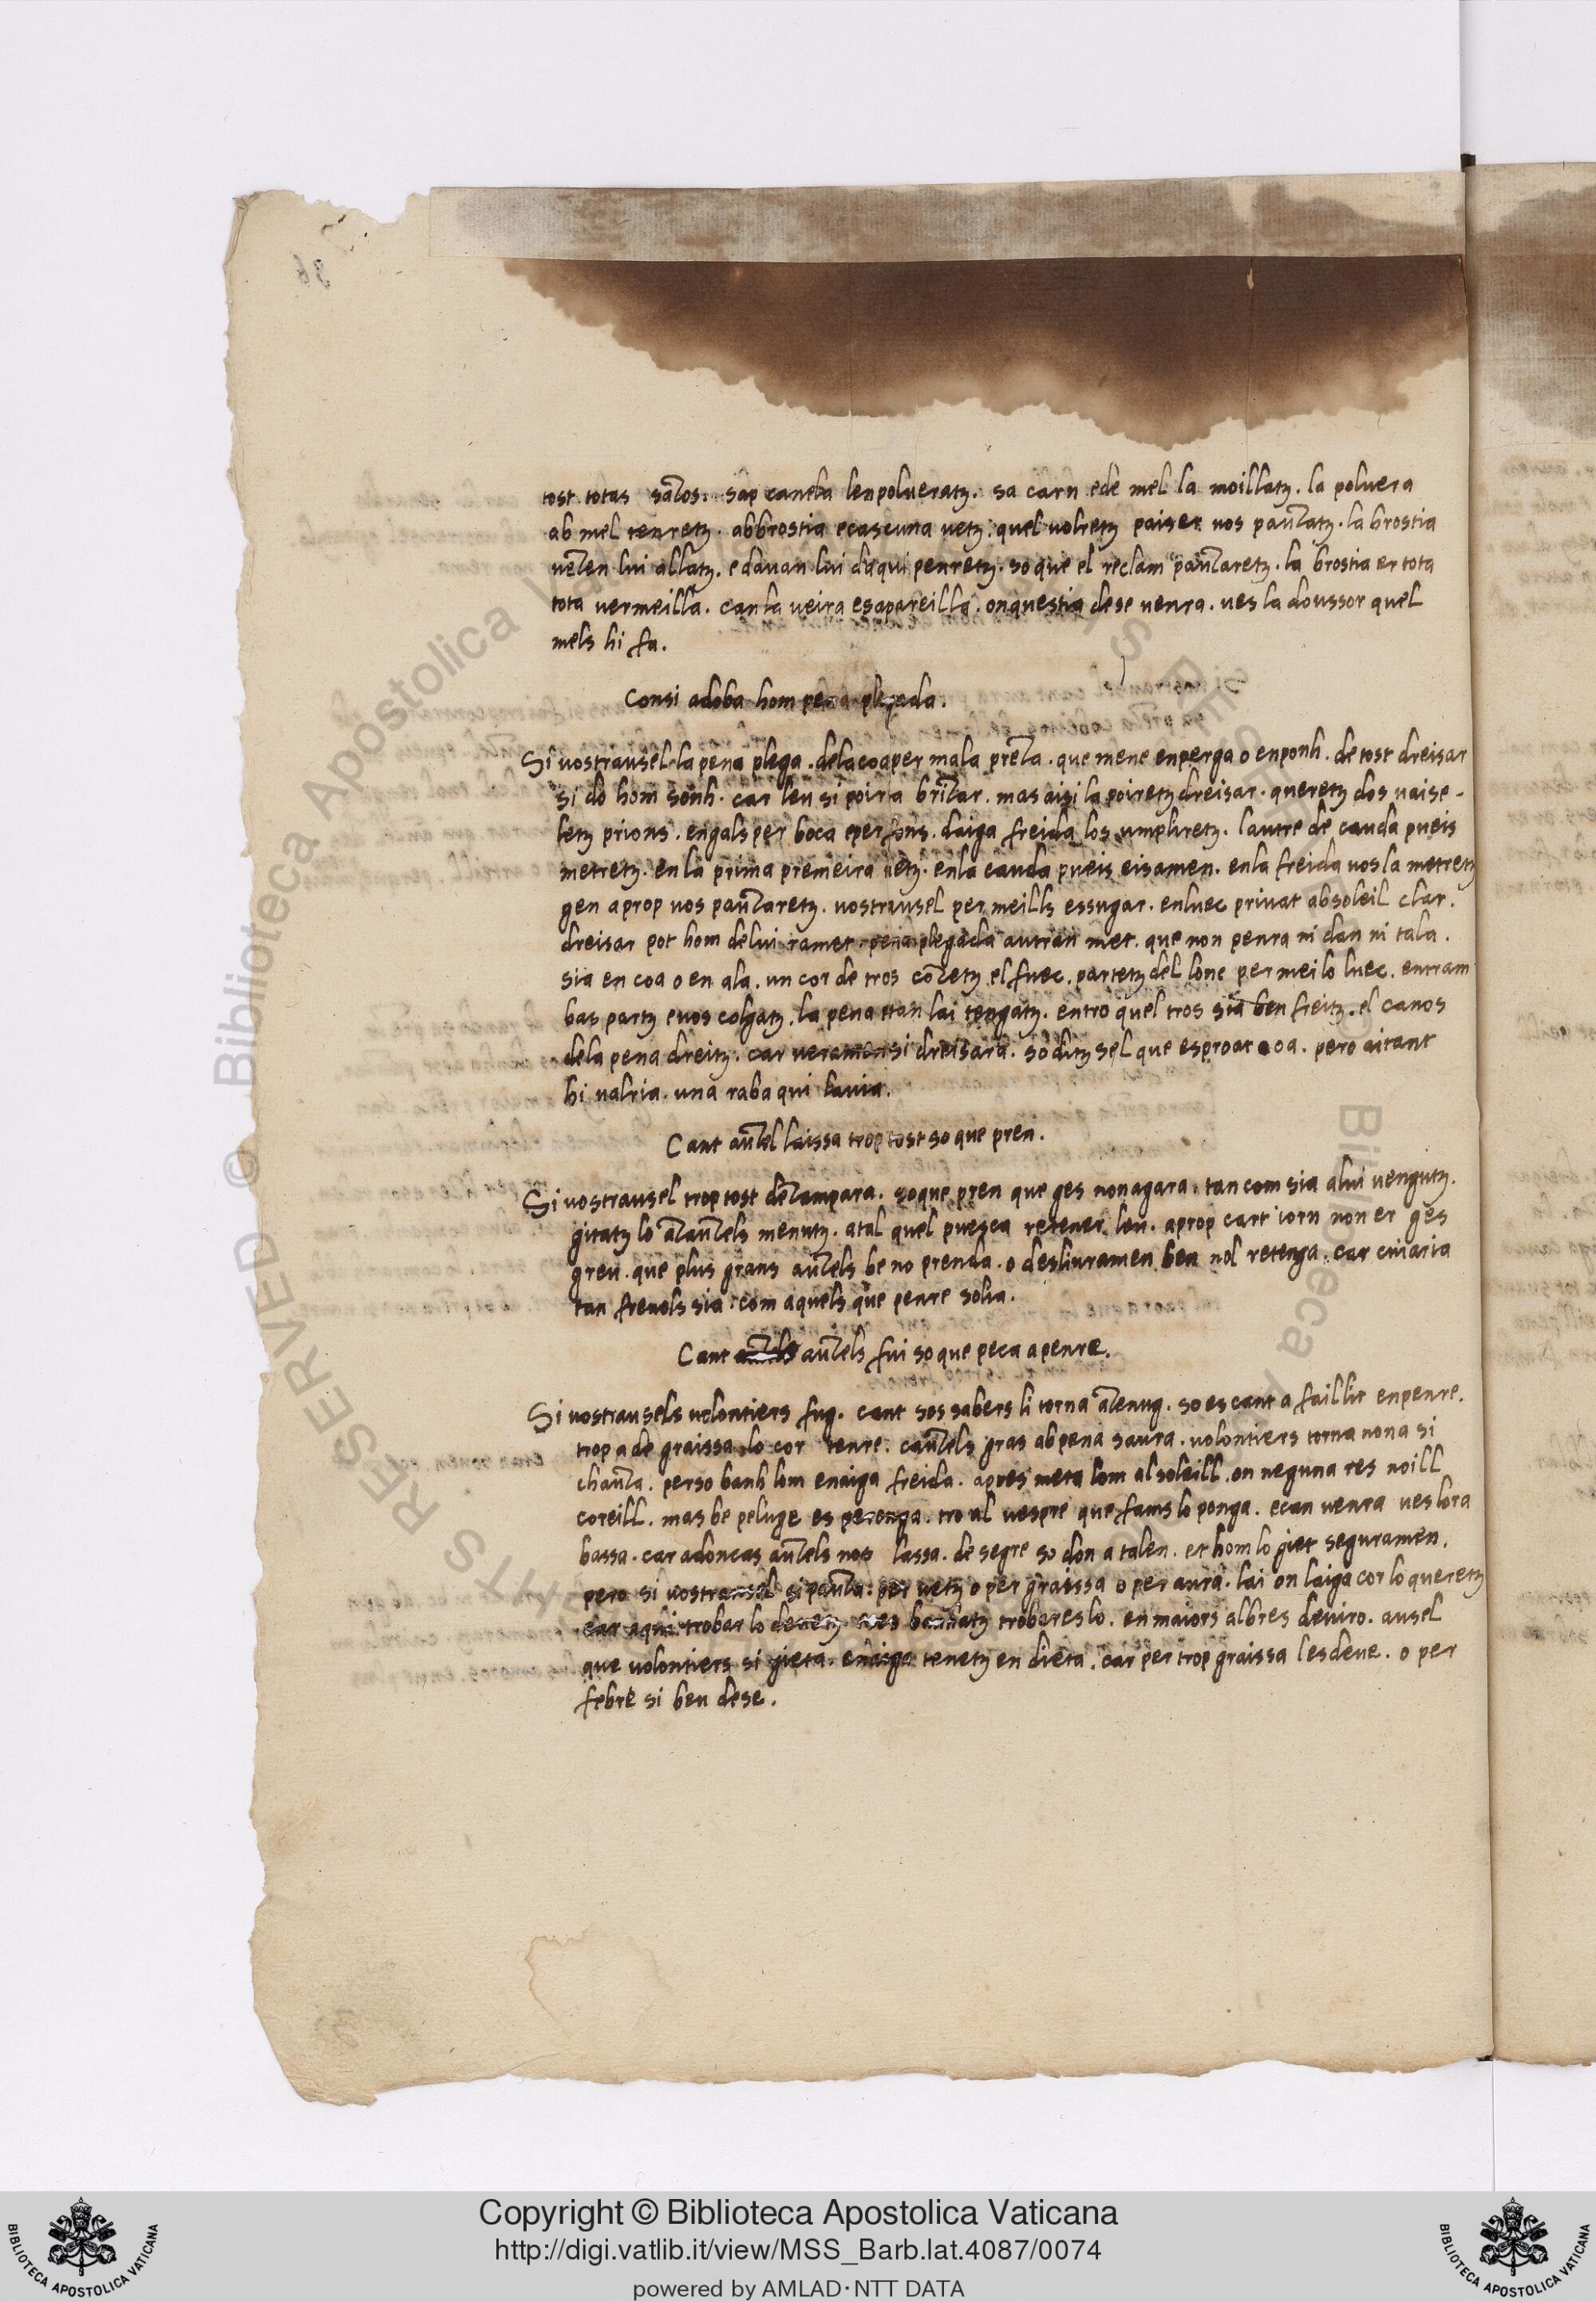 tost totas sazos. sap caneta lenpolueratz. sa carn ede mel la moillatz. la poluera
ab mel tenretz. abbrostia ecascuna uetz. quel uolretz paiser uos pauzatz. la brostia
uezen lui allatz. e dauan lui daqui penretz. so que el reclam pauzaretz. la brostia er tota
tota uermeilla. can la ueira esapareilla. onquestia dese uenra. ues la doussor quel
mels hi fa.
Consi adoba hom pena plegada.
Si uostrausel la pena plega. delacoaper mala preza. que mene enperga o enponh. de tost dreisar
si do hom sonh. car leu si poiria brizar. mas aisi la poiretz dreisar. queretz dos uaise-
letz prions. engals per boca eper fons. daiga freida los umpliretz. lautre de cauda pueis
metretz. en la prima premeira uetz. enla cauda pueis eisamen. enla freida uos la metretz
gen aprop uos pauzaretz. uostrausel per meills essugar. enluec priuat absoleil clar.
dreisar pot hom delui ramet. pena plegada autran met. que non penra ni dan ni tala.
sia en coa o en ala. un cor de tros cozetz el fuec. partetz del lonc per mei lo luec. entram
bas partz euos colgatz. la pena ttan lai tengatz. entro quel tros sia ben freitz. el canos
dela pena dreitz. car ueramen si dreisara. so ditz sel que esproat oa. pero aitant
hi ualria. una raba qui lauia.
Cant auzel laissa trop tost so que pren.
Si uostrausel trop tost dezampara. soque pren que ges nonagara. tan com sia alui uengutz.
gitatz lo azauzels menutz. atal quel puesca retener leu. aprop cart iorn non er ges
greu. que plus grans auzels be no prenda. o desliuramen ben nol retenga. car cuiaria
tan freuols sia. com aquels que penre solia.
Cant auzels fui so que peca apenre.
Si uostrausels uolontiers fug. cant sos sabers li torna azenug. so es cant a faillit enpenre.
trop a de graissa lo cor tenre. cauzels gras abpena saura. uolontiers torna nona si
chauza. perso banh lom enaiga freida. apres meta lom al soleill. on neguna res noill
coreill. mas be peluge es peronga. tro al uespre que fams lo ponga. ecan uenra ues lora
bassa. car adoncas auzels nos lassa. de segre so don a talen. et hom lo giet seguramen.
pero si uostrausel si pauza. per uetz o per graissa o per aura. lai on laiga cor lo queretz
car aqui trobar lo deuetz. banhatz trobares lo. en maiors albres deuiro. ausel
que uolontiers si gieta. enaiga tenetz en dieta. car per trop graissa lesdeue. o per
febre si beu dese.
Copyright © Biblioteca Apostolica Vaticana
http://digi.vatlib.it/view/MSS_Barb.lat.4087/0074
powered by AMLAD·NTT DATA